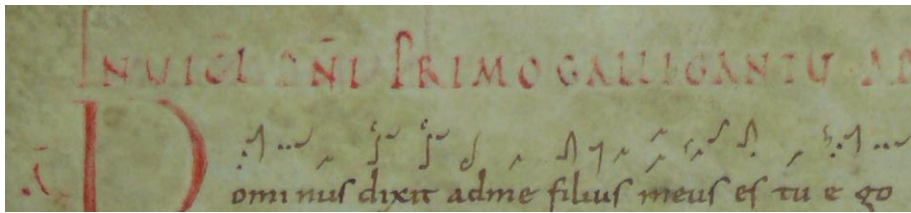 IN UIGL DNI PRIMO GALLI CANTU AD
Dominus dixit adme filius meus es tu e go